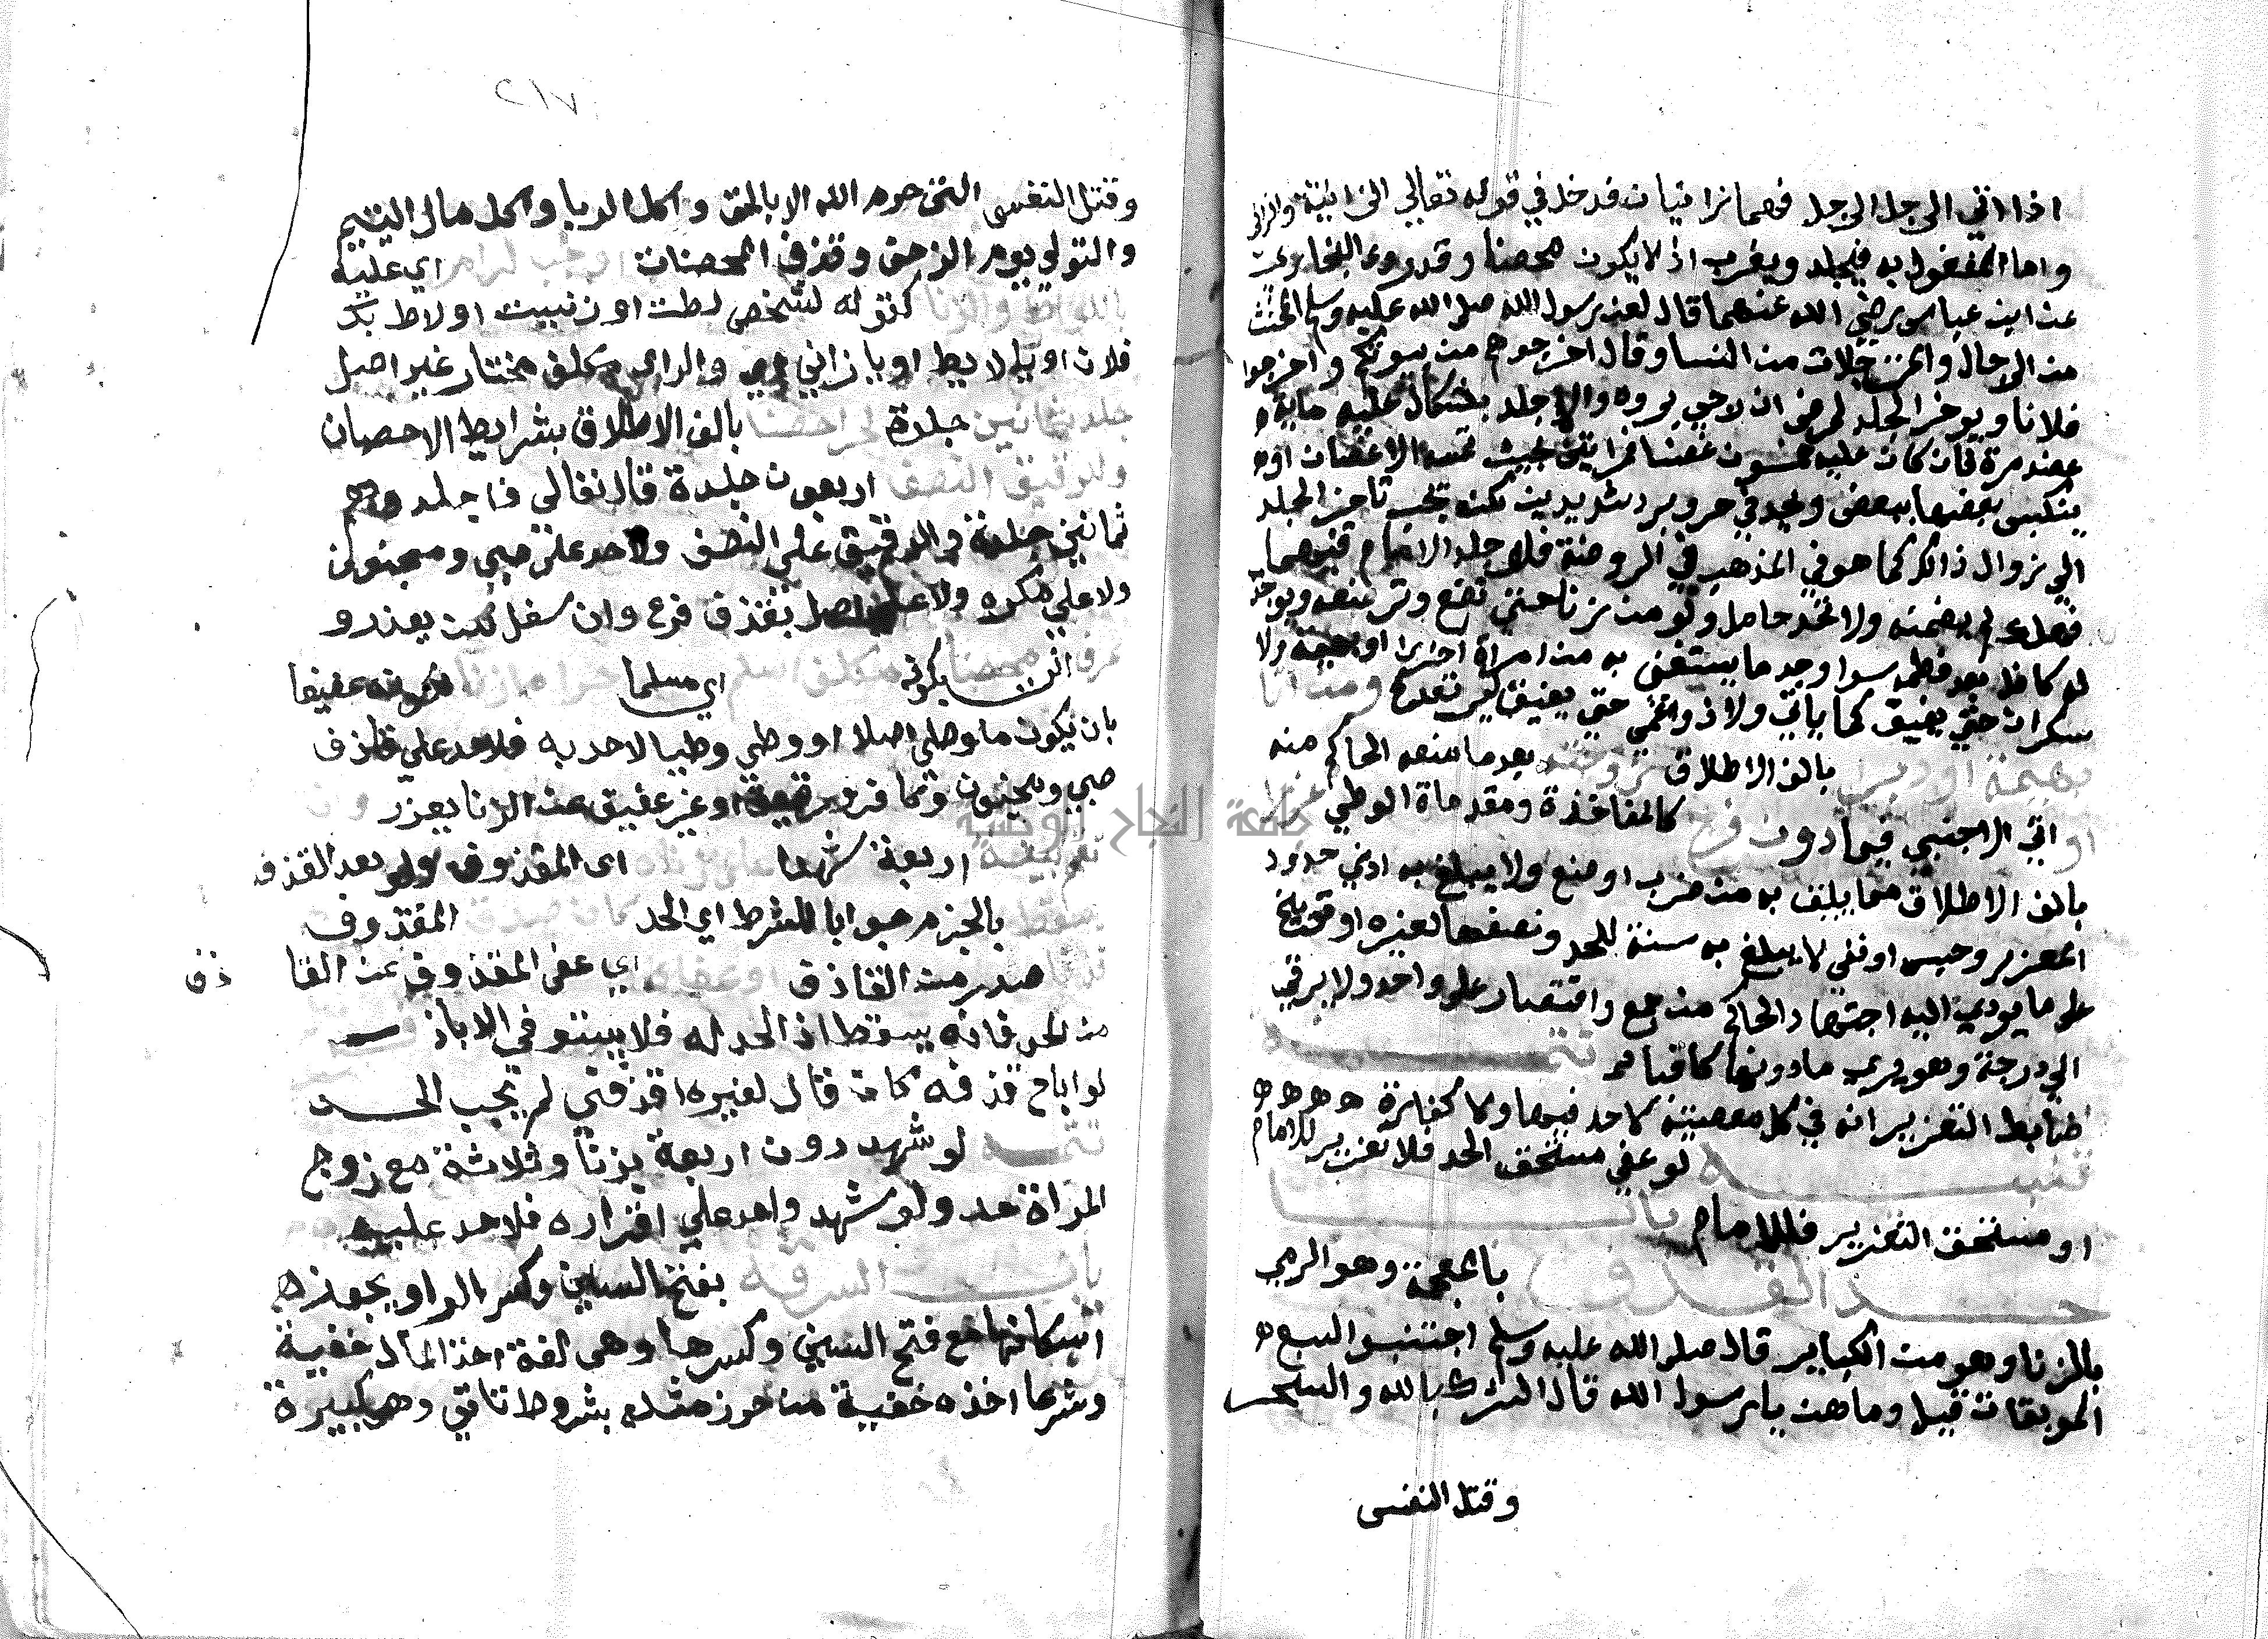 اذا اتي الرجل الرجل فهما زانيان فدخل في قوله تعالي الزانية والزاني
واما المفعول به فيجلد ويغرب اذ لا يكون محصنا وقد روي البخاري
عن ابن عباس رضي الله عنهما قال لعن رسول الله صلي الله عليه وسلم المخنثين
من الرجال والمترجلات من النسا وقال اخرجوهم من بيوتكم واخرجوا
فلانا ويوخر الجلد لمرض ان لاجي بروه والا جلد بعثكال عليه مايه
غصن مرة فان كان عليه خمسون غصنا مرتين بحيث تمسه الاغصان او
ينكبس بعضها ببعض ويجد في حر وبرد شديدين لكن يجب تاخر الجلد
الي زوال ذالك كما هو في المذهب في الروضة فلو جلد الامام فيهما
فهلك لم يضمنه ولا تحد حامل ولو من زنا حتي تضع وترضعه ويوجد
له كافل بعد فطمه سوا وجد ما يستغني به من امراة اخري او بهيمة ولا
سكران حتي يفيق كما ياتي ولا ذو اغمي حتي يفيق ومن اتا
بهيمة او دبرا بالف الاطلاق زوجته بعد ما منعه الحاكم منه
او اتي الاجنبي فيما دون فرج كالمفاخذة ومقدماة الوطي عزرا
بالف الاطلاق مما يليق به من ضرب او منع ولا يبلغ به ادني حدود
المعزر وحبس او نفي لا يبلغ به سنة للحر ونصفها لغيره او توبيخ
علي ما يودي اليه اجتهاد الحاكم من جمع واقتصار علي واحد ولا يرقي
الي درجة وهو يري ما دونها كافيا تتمة
ضابط التعزير انه في كل معصية لا حد فيها ولا كفارة ه ه ه ه
تنبيه لو عفي مستحق الحد فلا تعزير للامام
او مستحق التعزير فللامام باب
حد القذف بالمعجمة وهو الرمي
بالزنا وهو من الكباير قال صلي الله عليه وسلم اجتنبوا السبع
الموبقات قيل وما هن يا رسول الله قال الشرك بالله والسحر
وقتل النفس
٢١٧
وقتل النفس التي حرم الله الا بالحق واكل الربا واكل مال اليتيم
والتولي يوم الزحف وقذف المحصنات اوجب لرام اي عليه
باللواط والزنا كقوله لشخص لطت او زنيت او لاط بك
فلان او يا لايط او يا زاني والرامي مكلف مختار غير اصل
جلد ثمانين جلدة لحر احصنا بالف الاطلاق بشرايط الاحصان
وللرقيق النصف اربعون جلدة قال تعالي فاجلدوهم
ثمانين جلدة والرقيق علي النصف ولا حد علي صبي ومجنون
ولا علي مكره ولا علي اصل بقذف فرع وان سفل لكن يعزر و
عرف محصنا اي بكونه مكلفا اسلم اي مسلما حرا ما زنا لكونه عفيفا
بان يكون ما وطي اصلا او وطي وطيا لا حد به فلا حد علي قاذف
صبي ومجنون وكافر ورقيق او غير عفيف عن الزنا يعزر وان
تقم بينة اربعة شهدا علي زناه اي المقذوف ولو بعد القذف
يسقط بالجزم جوابا للشرط اي الحد كما ان صدق المقذوف
قذفا صدر من القاذف او عفا اي عفي المقذوف عن القاذف
من الحد فانه يسقط اذ الحد له فلا يستوفي الا باذنه
لو اباح قذفه كان قال لغيره اقذفني لم يجب الحد
تتمة لو شهد دون اربعة بزنا وثلاثة مع زوج
المراة حد ولو شهد واحد علي اقراره فلا حد عليه
باب السرقة بفتح السين وكسر الراو يجوز
اسكانها مع فتح السين وكسرها وهي لغة اخذ المال خفية
وشرعا اخذه خفية من حرز مثله بشروط تاتي وهي كبيرة